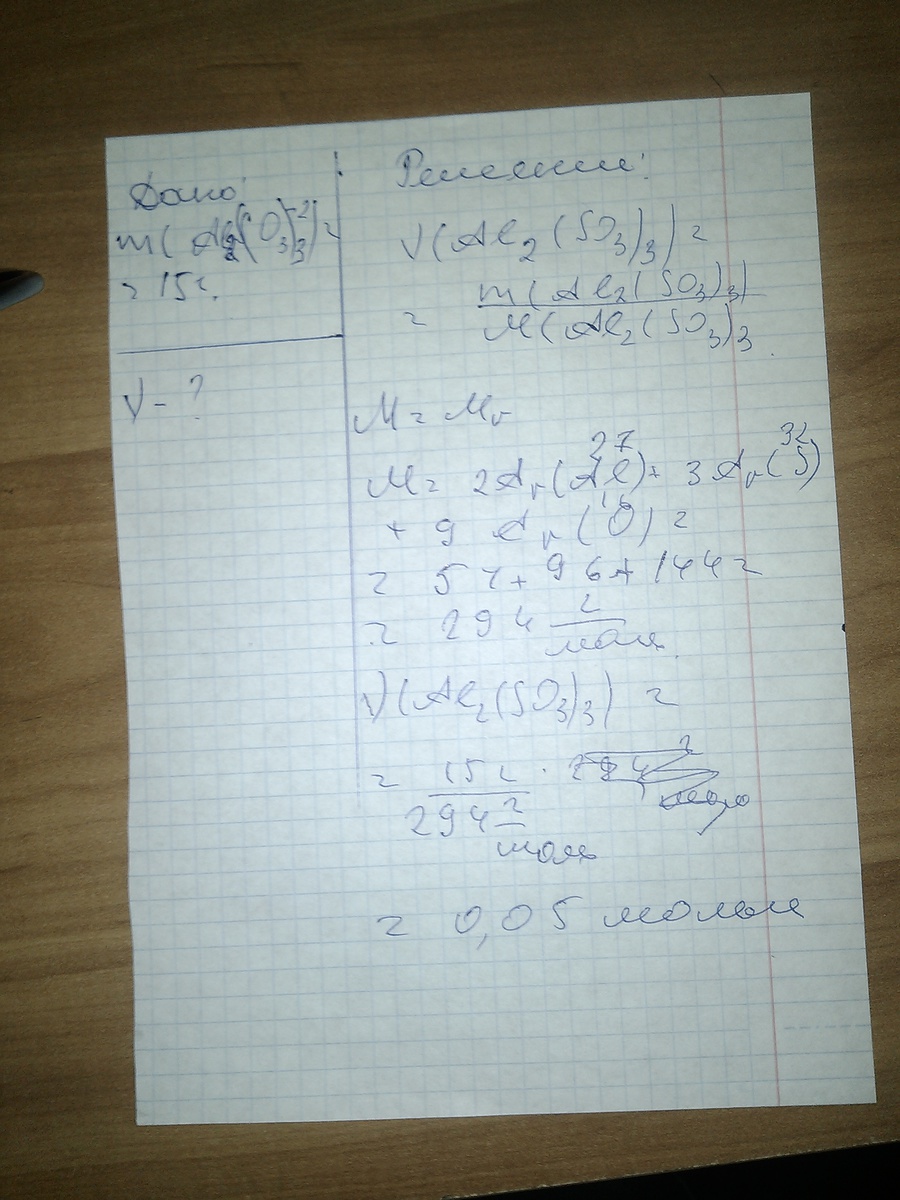 Дано:
m(Al2(SO3)3) =
= 15г.
ν - ?
Решение:
ν(Al2(SO3)3) =
= m(Al2(SO3)3)
M(Al2(SO3)3
M = Mr
27 32
M = 2Ar(Al) + 3Ar(S)
16
+ 9 Ar(O) =
= 54 + 96 + 144 =
= 294 г/моль
ν(Al2(SO3)3) =
= 15г ·
294 г/моль
= 0,05 моль